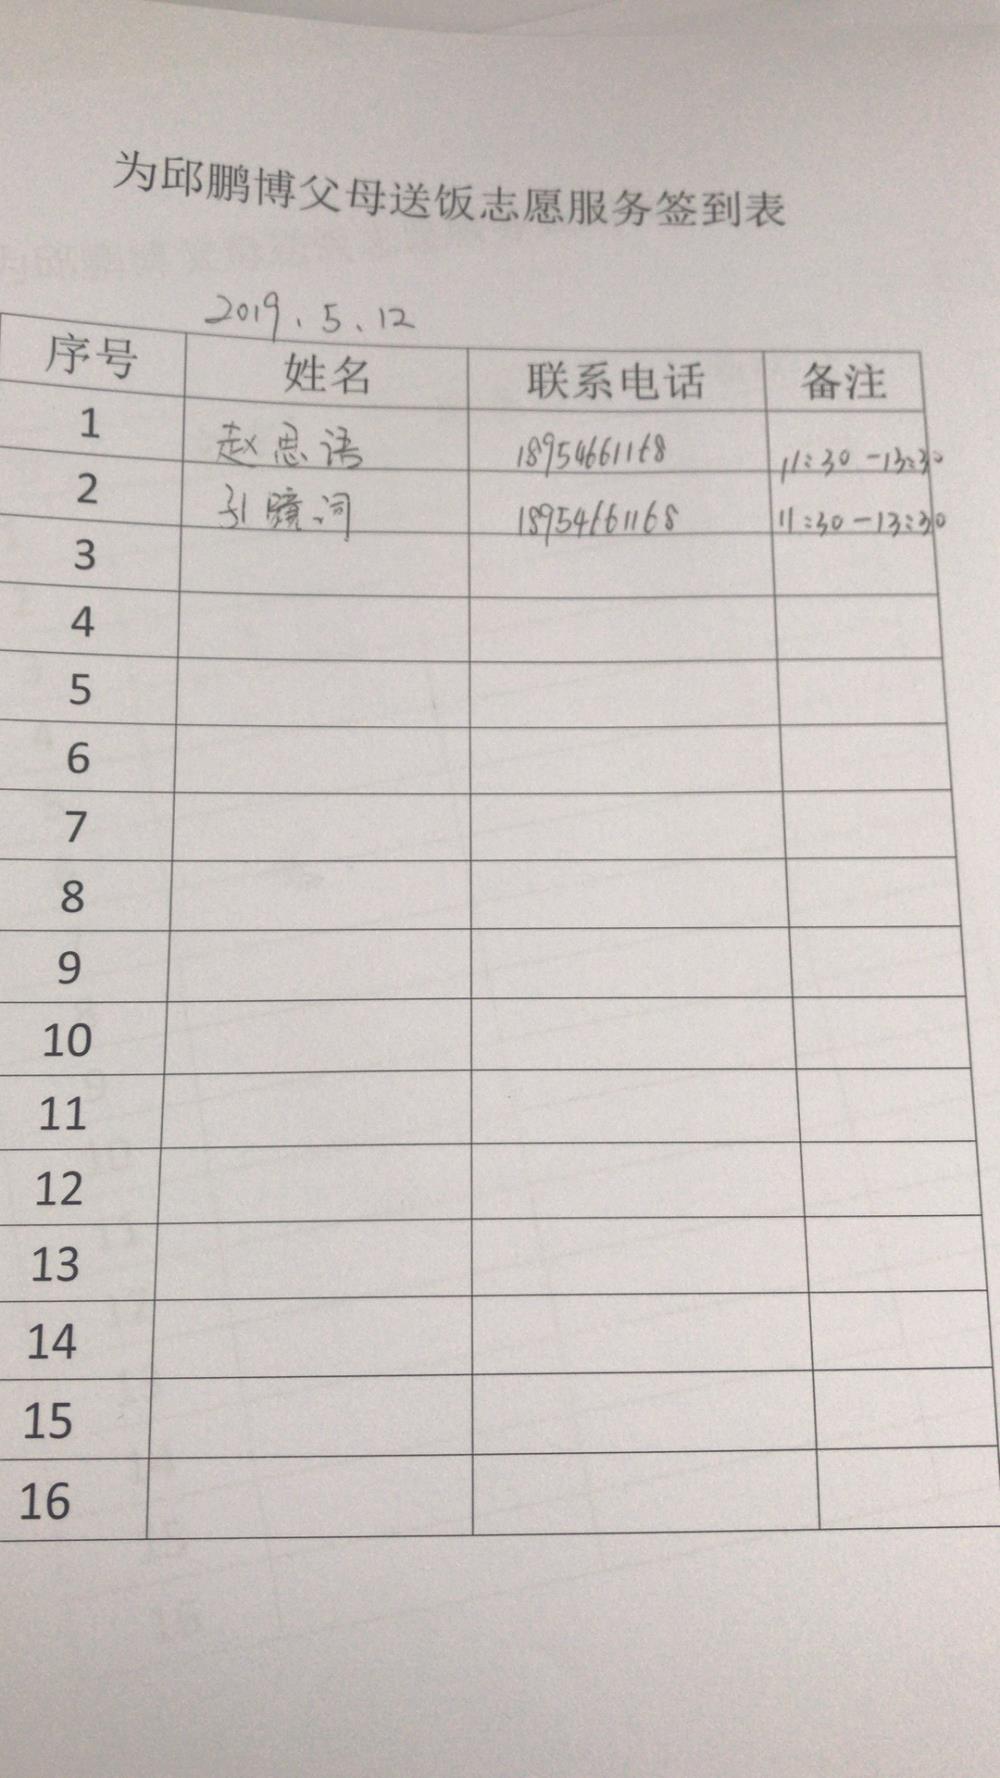 为邱鹏博父母送饭志愿服务签到表
2019.5.12
序号 姓名 联系电话 备注
1 赵思语 18954661168 11:30-13:30
2 18954661168 11:30-13:30
3
4
5
6
7
8
9
10
11
12
13
14
15
16